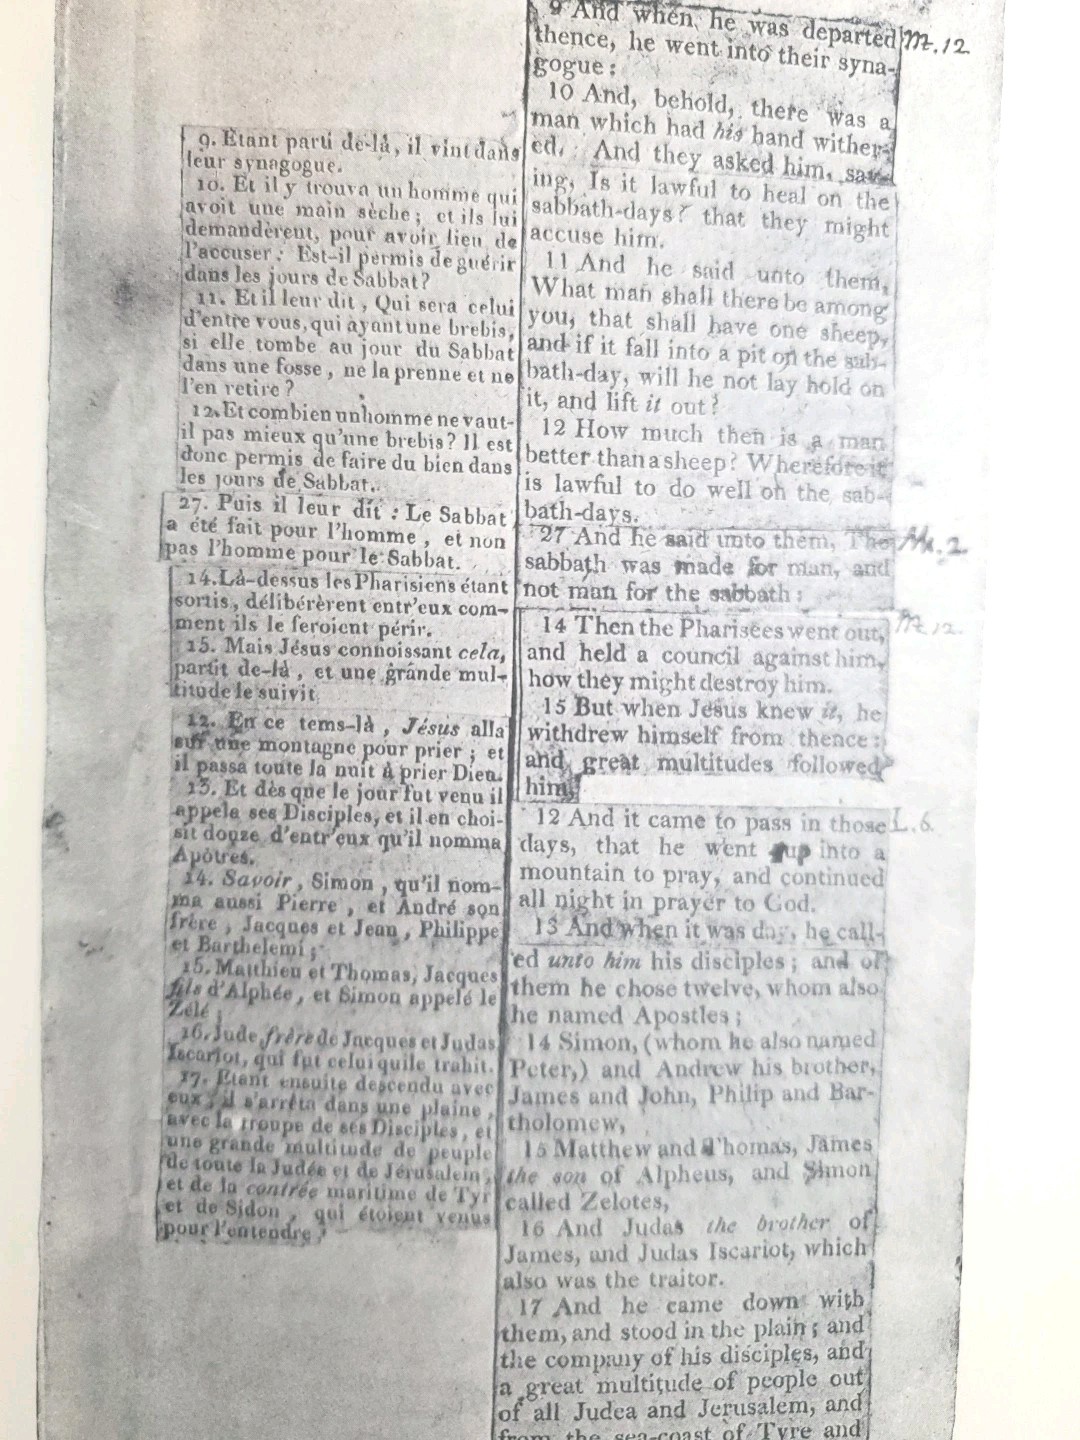 9. Etant parti de-là, il vint dans
leur synagogue.
10. Et il y trouva un homme qui
avoit une main sèche; et ils lui
demandèrent, pour avoir lieu de
l'accuser: Est-il permis de guérir
dans les jours de Sabbat?
11. Et il leur dit, Qui sera celui
d'entre vous, qui ayant une brebis,
si elle tombe au jour du Sabbat
dans une fosse, ne la prenne et ne
l'en retire?
12. Et combien un homme ne vaut-
il pas mieux qu'une brebis? Il est
donc permis de faire du bien dans
les jours de Sabbat.
27. Puis il leur dit: Le Sabbat
a été fait pour l'homme, et non
pas l'homme pour le Sabbat.
14. Là-dessus les Pharisiens étant
sortis, délibérèrent entr'eux com-
ment ils le feroient périr.
15. Mais Jésus connoissant cela,
partit de-là, et une grande mul-
titude le suivit
12. En ce tems-là, Jésus alla
sur une montagne pour prier; et
il passa toute la nuit à prier Dieu.
13. Et dès que le jour fut venu il
appela ses Disciples, et il en choi-
sit douze d'entr'eux qu'il nomma
Apôtres.
14. Savoir, Simon, qu'il nom-
ma aussi Pierre, et André son
frère, Jacques et Jean, Philippe
et Barthelemi;
15. Matthieu et Thomas, Jacques
fils d'Alphée, et Simon appelé le
Zélé;
16. Jude frère de Jacques et Judas
Iscariot, qui fut celui qui le trahit.
17. Etant ensuite descendu avec
eux, il s'arrêta dans une plaine,
avec la troupe de ses Disciples, et
une grande multitude de peuple
de toute la Judée et de Jérusalem,
et de la contrée maritime de Tyr
et de Sidon, qui étoient venus
pour l'entendre,
9 And when he was departed M.12
thence, he went into their syna-
gogue:
10 And, behold, there was a
man which had his hand wither-
ed. And they asked him, say-
ing, Is it lawful to heal on the
sabbath-days? that they might
accuse him.
11 And he said unto them,
What man shall there be among
you, that shall have one sheep,
and if it fall into a pit on the sab-
bath-day, will he not lay hold on
it, and lift it out?
12 How much then is a man
better than a sheep? Wherefore it
is lawful to do well on the sab-
bath-days.
27 And he said unto them, The Mk.2
sabbath was made for man, and
not man for the sabbath:
14 Then the Pharisees went out, M.12.
and held a council against him,
how they might destroy him.
15 But when Jesus knew it, he
withdrew himself from thence:
and great multitudes followed
him,
12 And it came to pass in those L.6.
days, that he went up into a
mountain to pray, and continued
all night in prayer to God.
13 And when it was day, he call-
ed unto him his disciples; and of
them he chose twelve, whom also
he named Apostles;
14 Simon, (whom he also named
Peter,) and Andrew his brother,
James and John, Philip and Bar-
tholomew,
15 Matthew and Thomas, James
the son of Alpheus, and Simon
called Zelotes,
16 And Judas the brother of
James, and Judas Iscariot, which
also was the traitor.
17 And he came down with
them, and stood in the plain; and
the company of his disciples, and
a great multitude of people out
of all Judea and Jerusalem, and
from the sea-coast of Tyre and